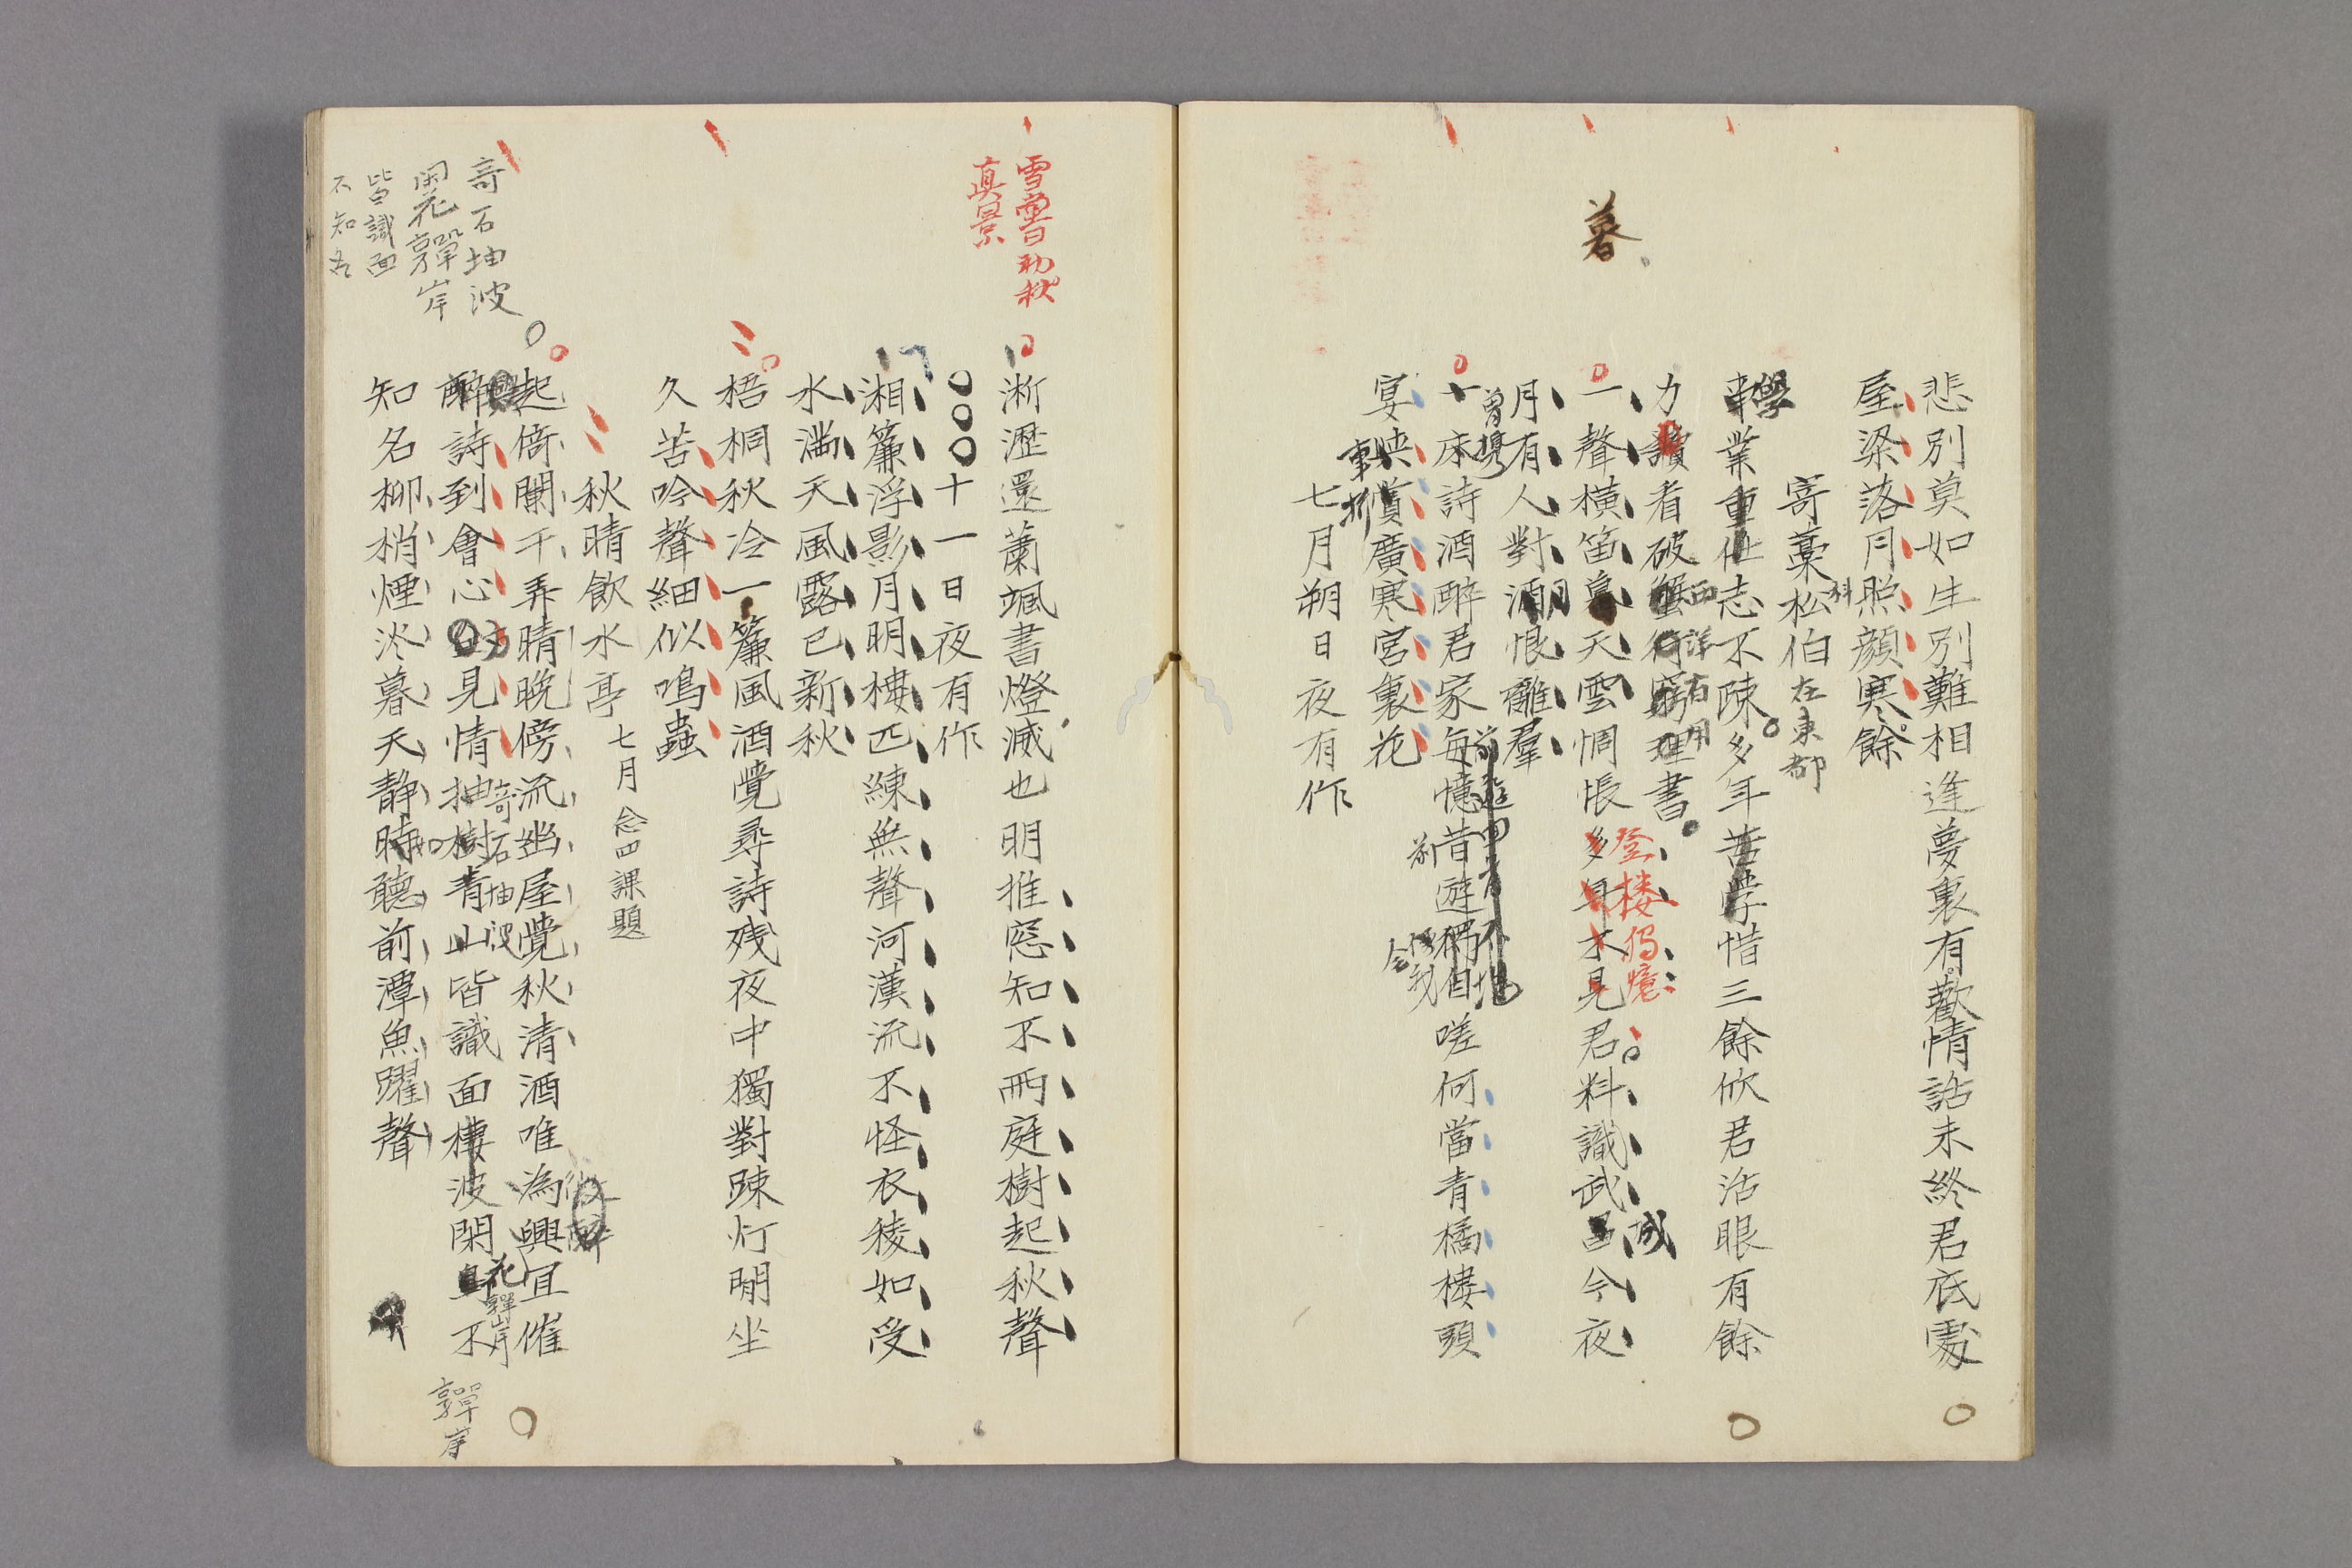 暮
悲別莫如生別難相逢夢裏有歡情話未終君底處
屋梁落月照顔寒餘
寄藁松伯在東都
學業重仕志不疎多年苦学惜三餘欣君活眼有餘
力讀看破蟹行窮理書
西洋有用
一聲横笛暮天雲惆悵多身不見君料識武昌今夜
登楼獨憶
城
月有人對酒恨離羣
一床詩酒醉君家每憶昔遊獨自嗟何當青橘樓頭
曽携
宴映賞廣寒宮裏花
七月朔日夜有作
雪黌曰初秋
真景
淅瀝還蕭颯書燈滅也明推窓知不雨庭樹起秋聲
十一日夜有作
湘簾浮影月明樓匹練無聲河漢流不怪衣稜如受
水滿天風露已新秋
梧桐秋冷一簾風酒覺尋詩残夜中獨對疎灯閒坐
久苦吟聲細似鳴蟲
秋晴飲水亭 七月念四課題
起倚闌干弄晴晩傍流幽屋覺秋清酒唯為興宜催
醉詩到會心見情抽樹青山皆識面樓波閑不
奇石抽波
花嚲岸
知名柳梢煙淡暮天静時聴前潭魚躍聲
奇石抽波
閑花嚲岸
皆識面
不知名
嚲岸